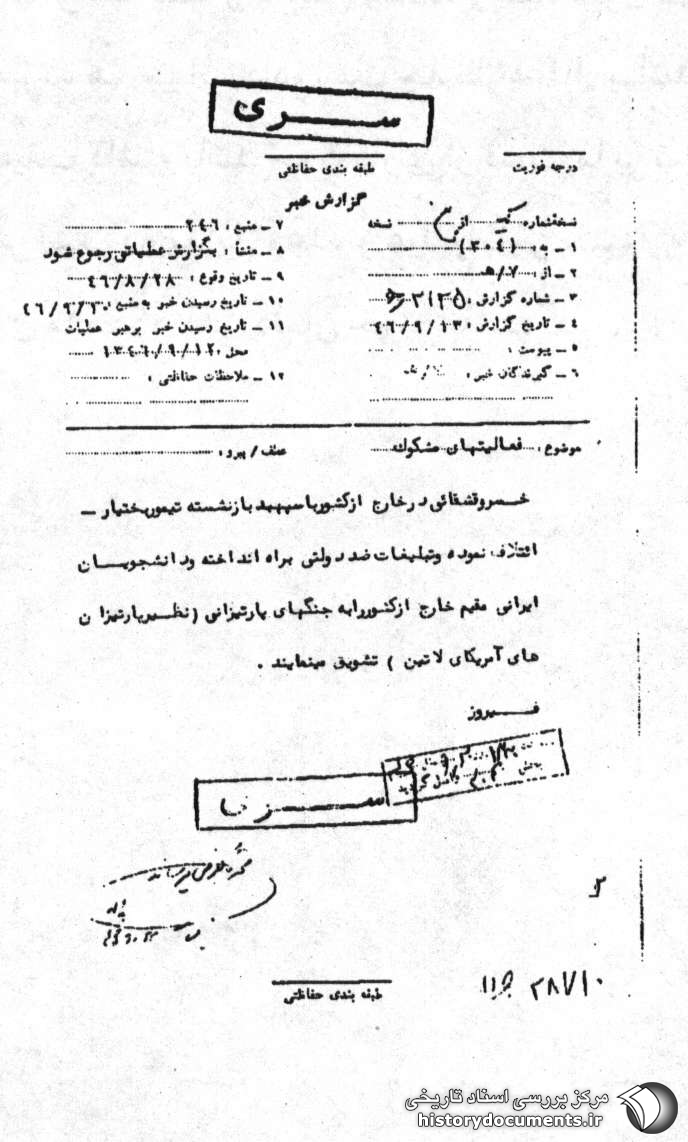 سری
درجه فوریت
طبقه بندی حفاظتی
گزارش خبر
نسخه شماره یک از نسخه
۱ ـ به : (۳۰۴)
۲ ـ از : ۷/ه
۳ ـ شماره گزارش : ۲۱۲۵
۴ ـ تاریخ گزارش : ۴۶/۹/۱۳
۵ ـ پیوست :
۶ ـ گیرندگان خبر :
۷ ـ منبع : ۲۴۰۶
۸ ـ منشأ : بگزارش عملیاتی رجوع شود
۹ ـ تاریخ وقوع : ۴۶/۸/۲۸
۱۰ ـ تاریخ رسیدن خبر به منبع : ۴۶/۹/۱۰
۱۱ ـ تاریخ رسیدن خبر برهبر عملیات
محل : ۱۳۴۶/۹/۱۲
۱۲ ـ ملاحظات حفاظتی :
موضوع : فعالیتهای مشکوک
عطف / پیرو :
خسروقشقائی درخارج ازکشورباسپهبد بازنشسته تیموربختیار ـ
ائتلاف نموده وتبلیغات ضد دولتی براه انداخته ودانشجویان
ایرانی مقیم خارج ازکشوررابه جنگهای پارتیزانی (نظیرپارتیزان
های آمریکای لاتین ) تشویق مینمایند .
فیروز
بخش
طبقه بندی حفاظتی
۲۸۷۱۰
۳
مرکز بررسی اسناد تاریخی
historydocuments.ir